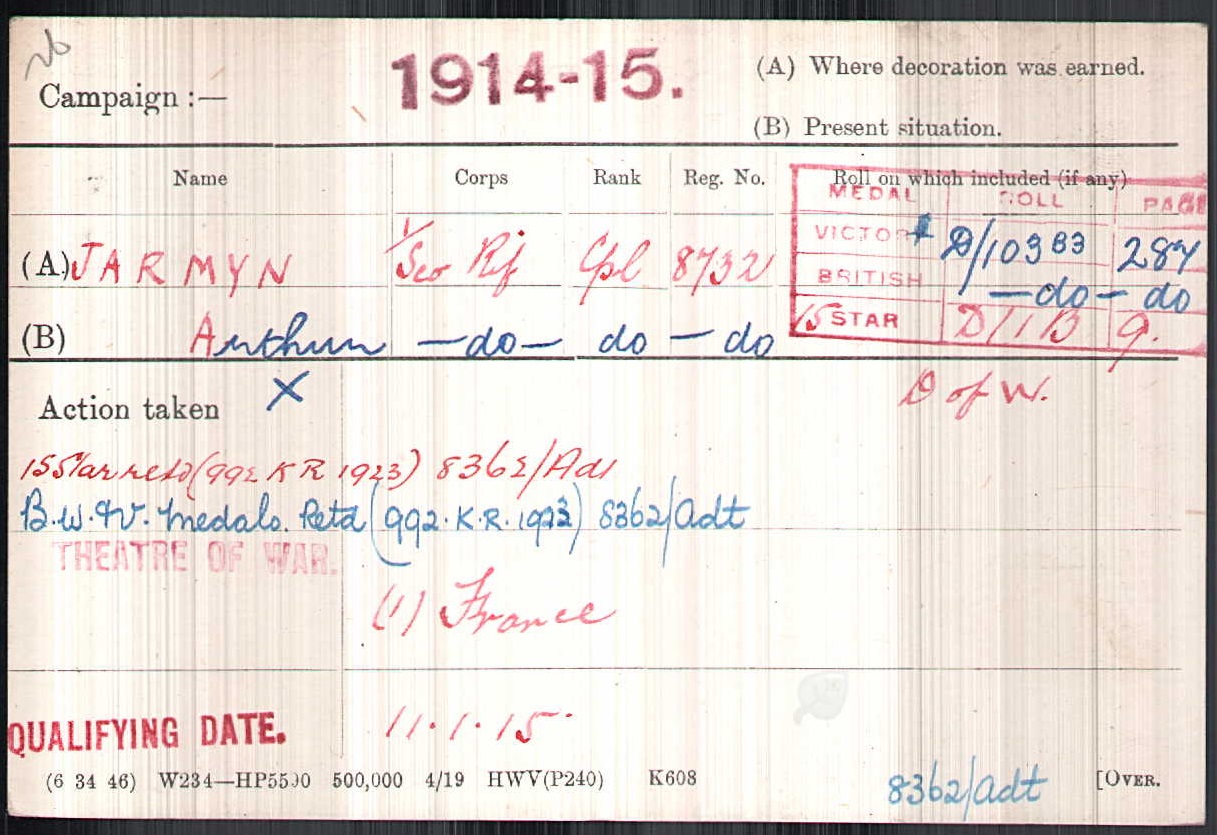 26
Campaign :— 1914-15. (A) Where decoration was earned.
(B) Present situation.
Name Corps Rank Reg. No. Roll on which included (if any)
MEDAL ROLL PAGE
(A) JARMYN 1/Sco Rif Cpl 8732 VICTORY D/103B3 287
BRITISH —do— do
(B) Arthur —do— do — do 15 STAR D/1/B 9.
Action taken X D of W.
15 Star retd (992 K R 1923) 8362/Adt
B.W. & V. Medals. Retd (992. K.R. 1923) 8362/Adt
THEATRE OF WAR.
(1) France
QUALIFYING DATE. 11.1.15.
(6 34 46) W234—HP5590 500,000 4/19 HWV(P240) K608 8362/Adt [OVER.